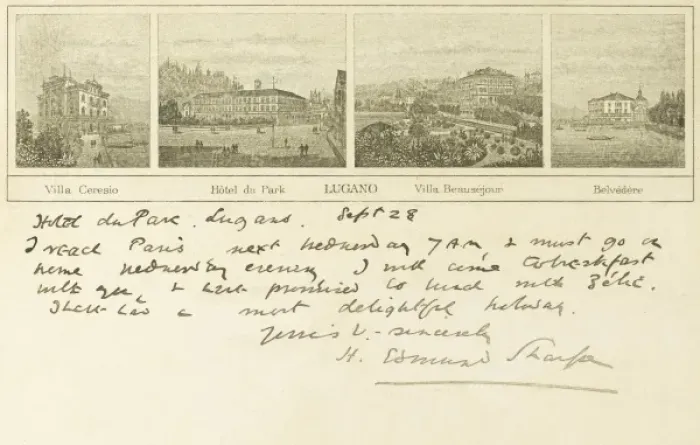 Villa Ceresio Hôtel du Park LUGANO Villa Beauséjour Belvédère
Hotel du Parc. Lugano. Sept 28
I reach Paris next Wednesday 7 AM & must go on
home Wednesday evening I will come to breakfast
with you & have promised to lunch with Zélie.
I have had a most delightful holiday.
Yours v. sincerely
H. Edmund Sharpe